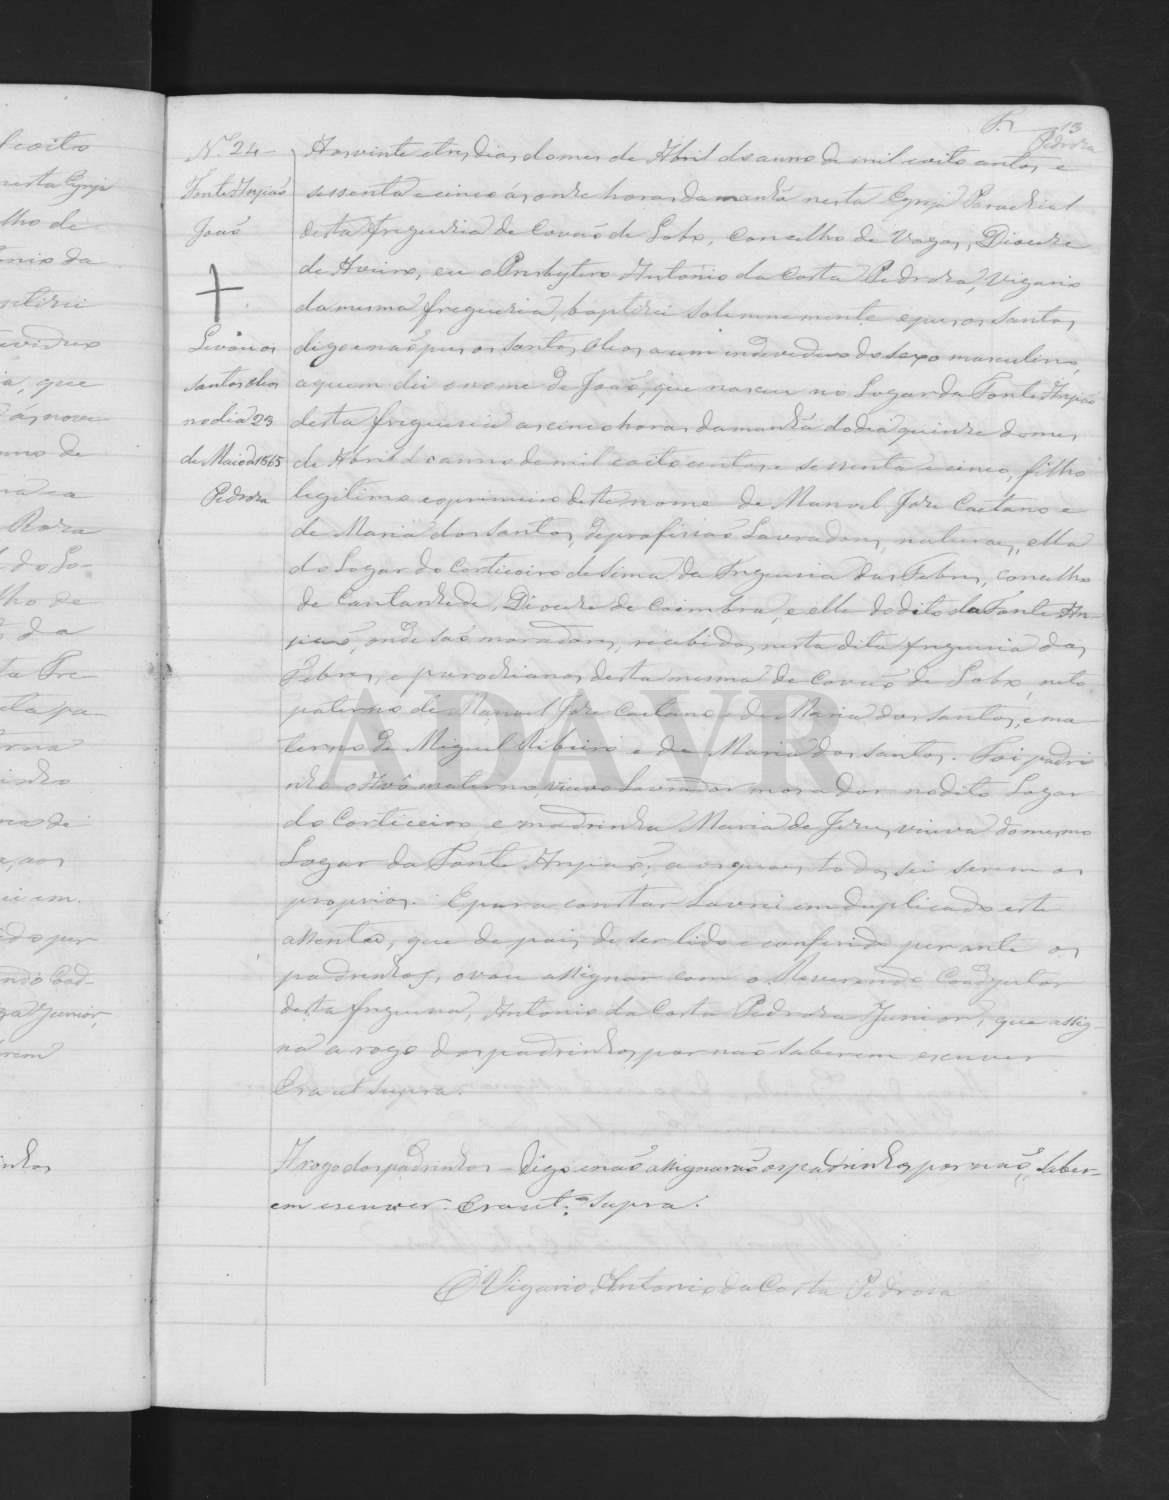 F. 13
Pedroza
N.º 24
Fonte Anjiaõ
Joaõ
Levou os
santos oleos
no dia 23
de Maio d 1865
Pedroza
Aos vinte e tres dias do mes de Abril do anno de mil e oito centos e
sessenta e cinco ás onze horas da manhã nesta Egreja Parochial
desta freguezia de Covaõ de Lobo, Concelho de Vagos, Diocese
de Aveiro, eu o Presbytero Antonio da Costa Pedroza, Vigario
da mesma freguezia, baptizei solemnemente e puz os santos
digo e naõ puz os santos oleos a um individuo do sexo masculino,
a quem dei o nome de Joaõ, que nasceu no Lugar da Fonte Anjiaõ
desta freguezia as cinco horas da manhã do dia quinze do mes
de Abril do anno de mil e oito centos e sessenta e cinco, filho
legitimo e primeiro deste nome de Manoel Joze Caetano e
de Maria dos Santos, de profissaõ Lavradores, naturaes, ella
do Logar do Corticeiro de Sima da Freguezia das Febres, concelho
de Cantanhede, Diocese de Coimbra, e elle do dito da Fonte An-
jiaõ, onde saõ moradores, recebidos nesta dita freguezia das
Febres, e parochianos desta mesma de Covaõ de Lobo, neto
paterno de Manoel Joze Caetano e de Maria dos Santos, e ma
terno de Miguel Ribeiro e de Maria dos Santos. Foi padri
nho o Avô materno, viuvo Lavrador morador no dito Logar
do Corticeiro e madrinha Maria de Jezus, viuva do mesmo
Logar da Fonte Anjiaõ; a os quaes todos sei serem os
proprios. E para constar Lavrei em duplicado este
assento, que depois de ser lido e conferido perante os
padrinhos, o vou assignar com o Reverendo Coadjutor
desta freguezia, Antonio da Costa Pedroza Junior, que assig-
na a rogo dos padrinhos por naõ saberem escrever
Era ut supra.
A rogo dos padrinhos – Digo e naõ assignaraõ os padrinhos por naõ saber-
em escrever. Era ut supra.
O Vigario Antonio da Costa Pedroza
ADAVR